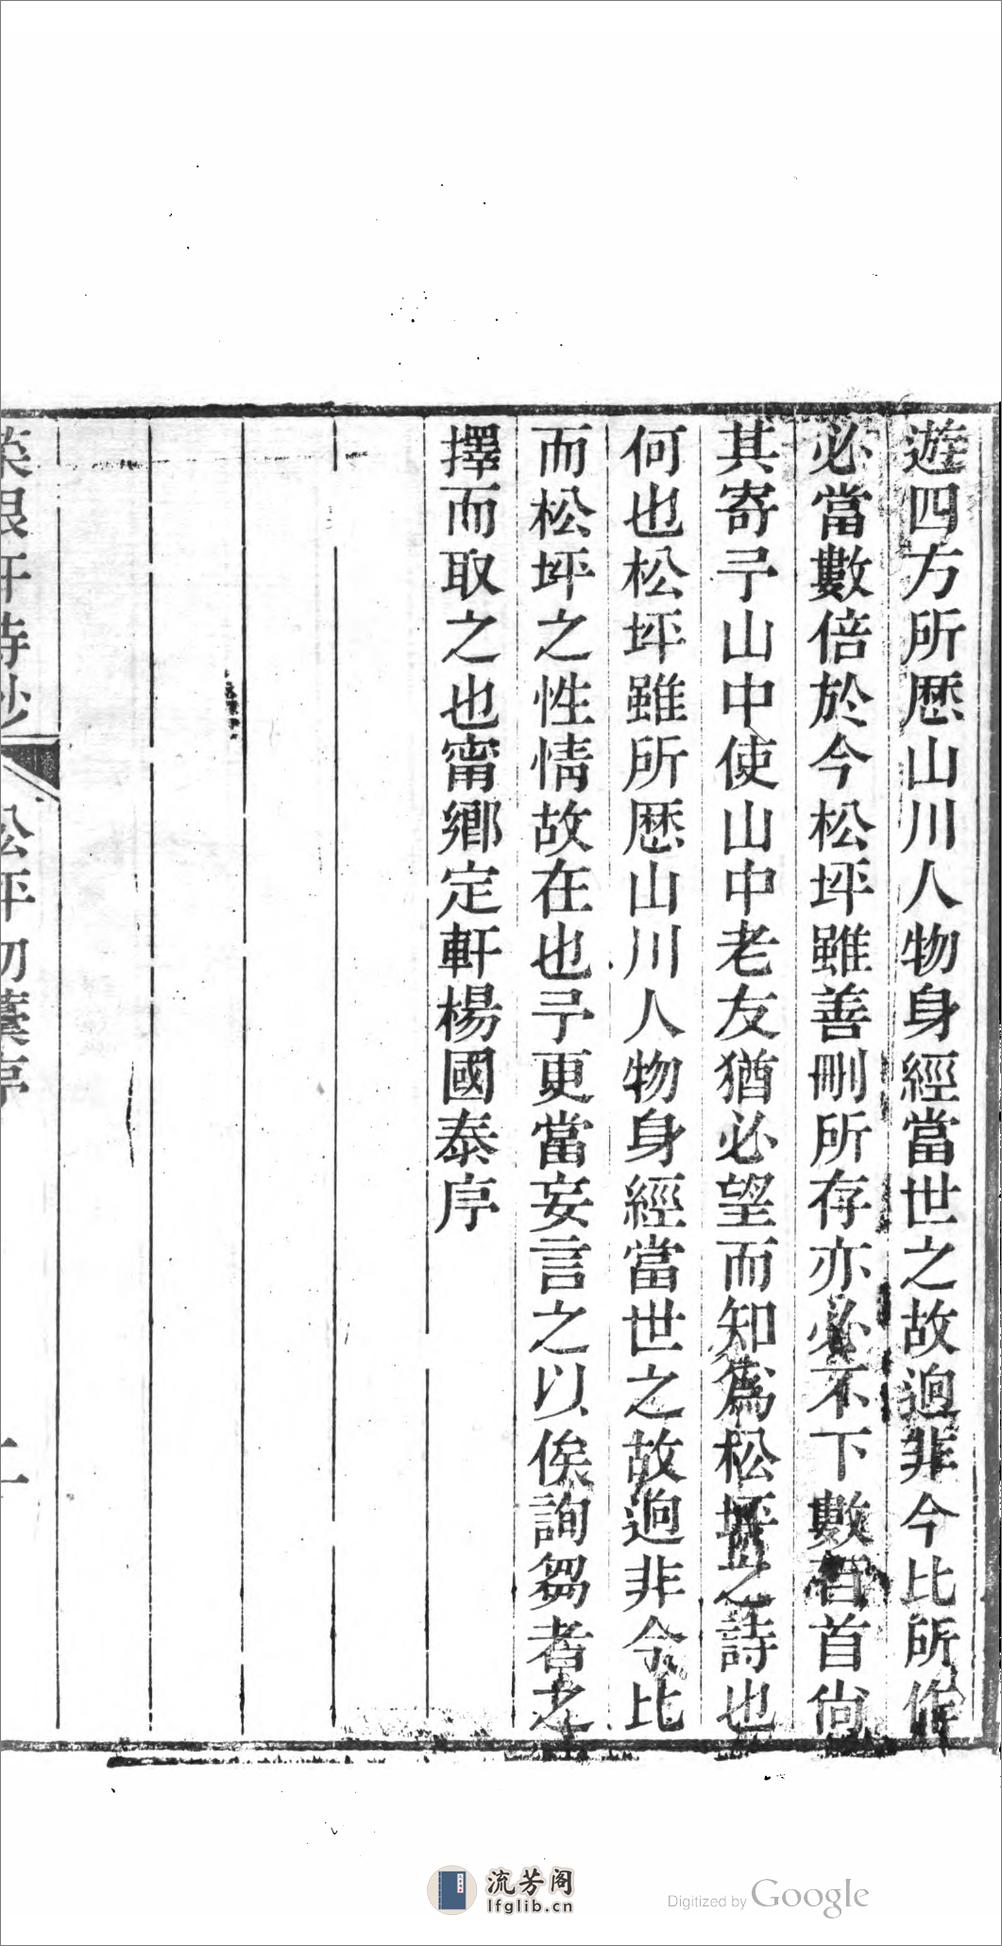 遊四方所歷山川人物身經當世之故逈非今比所作
必當數倍於今松坪雖善刪所存亦必不下數百首尙
其寄予山中使山中老友猶必望而知爲松坪之詩也
何也松坪雖所歷山川人物身經當世之故逈非今比
而松坪之性情故在也予更當妄言之以俟詢芻者之
擇而取之也甯鄉定軒楊國泰序
菜根軒詩鈔 松坪初藁序 二
流芳阁
lfglib.cn
Digitized by Google